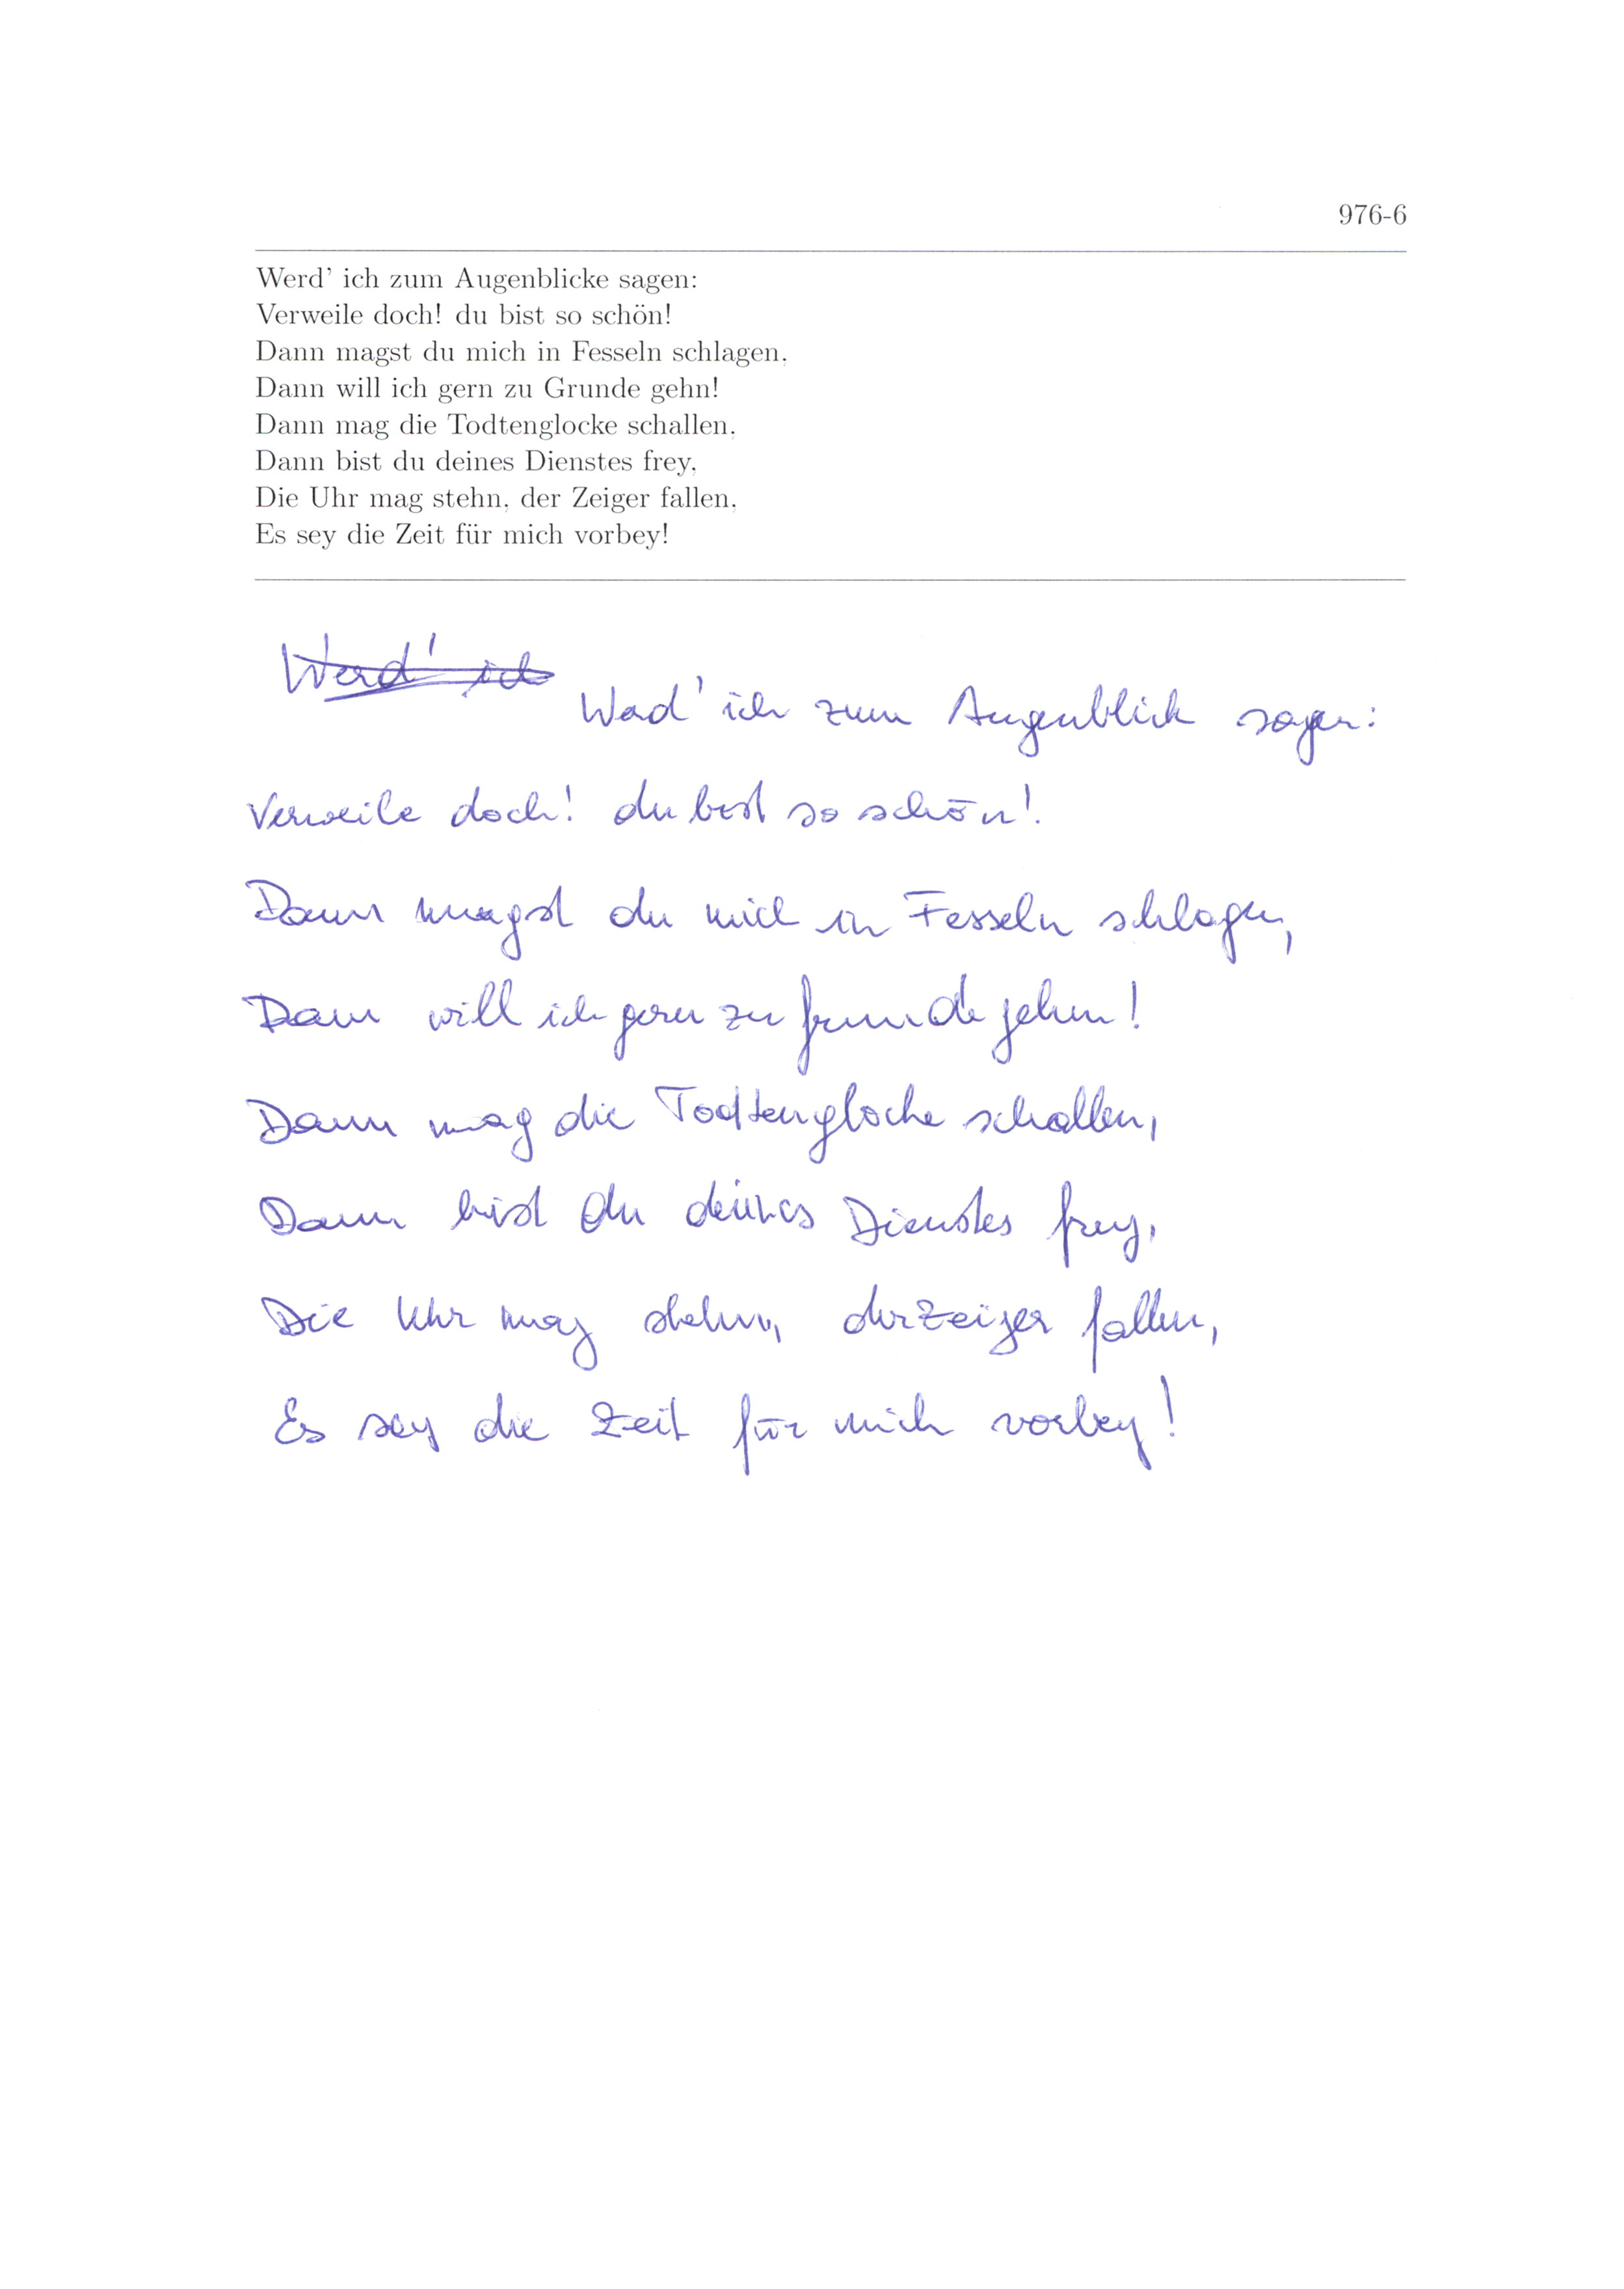 976-6
Werd' ich zum Augenblicke sagen:
Verweile doch! du bist so schön!
Dann magst du mich in Fesseln schlagen,
Dann will ich gern zu Grunde gehn!
Dann mag die Todtenglocke schallen,
Dann bist du deines Dienstes frey,
Die Uhr mag stehn, der Zeiger fallen,
Es sey die Zeit für mich vorbey!
Werd' ich
Werd' ich zum Augenblick sagen:
Verweile doch! du bist so schön!
Dann magst du mich in Fesseln schlagen,
Dann will ich gern zu grunde gehen!
Dann mag die Todtenglocke schallen,
Dann bist du deines Dienstes frey,
Die Uhr mag stehn, der Zeiger fallen,
Es sey die Zeit für mich vorbey!